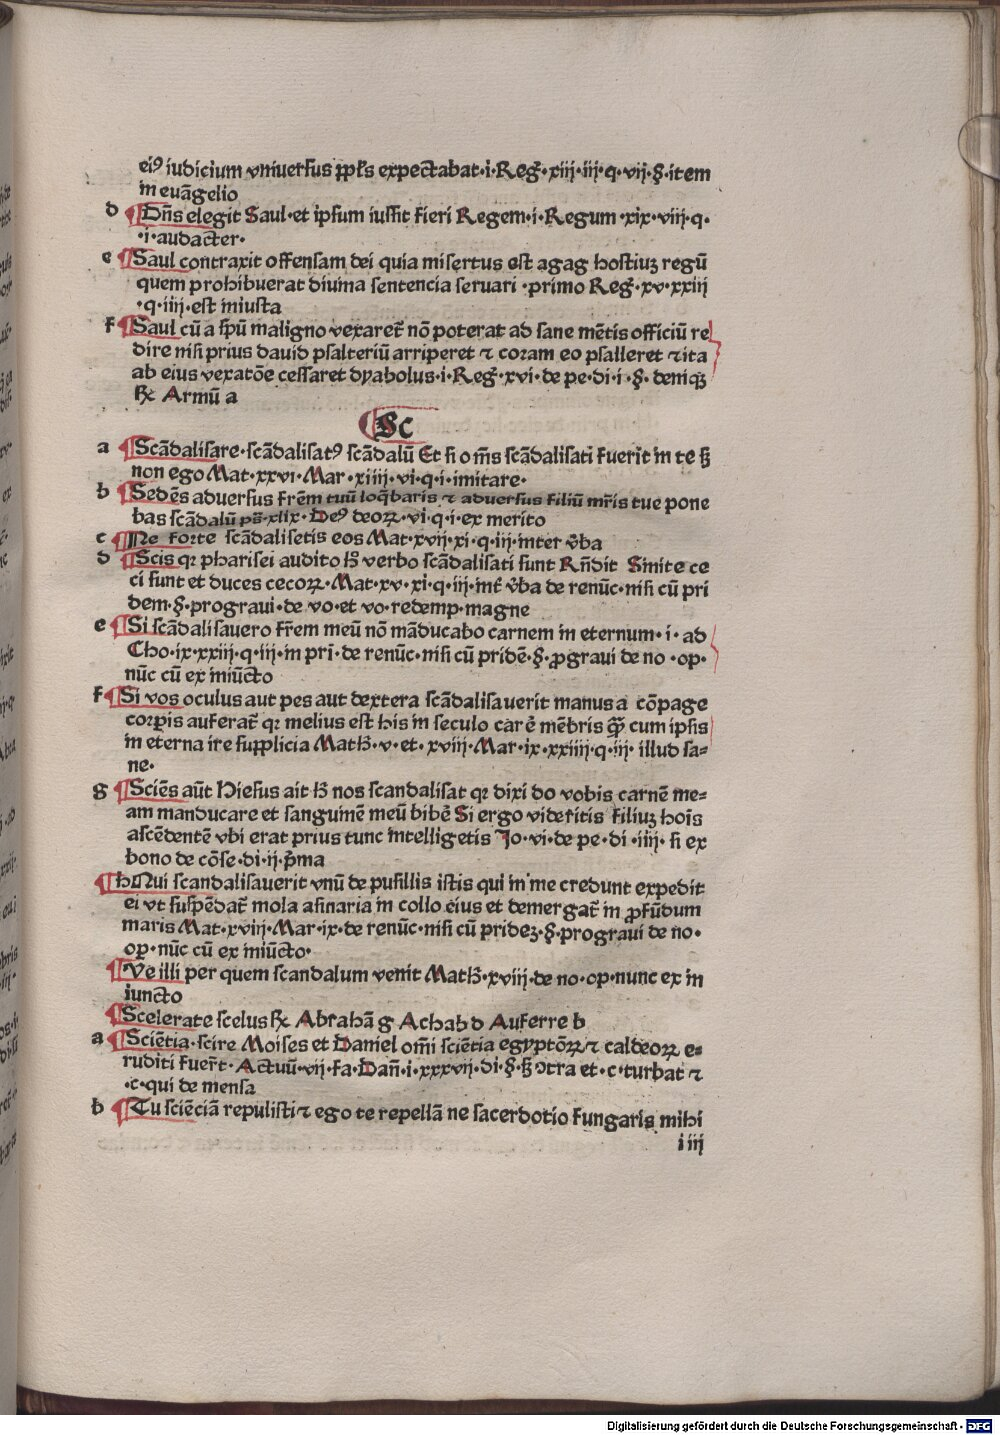 eiꝰ iudicium vniuersus ppl̄s expectabat·i·Reg̃·xiij·iij·q·vij·§·item
in euãgelio
d ¶Dn̄s elegit Saul·et ipsum iussit fieri Regem·i·Regum·xix·viij·q·
·i·audacter·
e ¶Saul contraxit offensam dei quia misertus est agag hostiuꝫ regū
quem prohibuerat diuina sentencia seruari·primo Reg̃·xv·xxiij
·q·iiij·est iniusta
f ¶Saul cū a spū maligno vexaret̃ nō poterat ad sane mētis officiū re
dire nisi prius dauid psalteriū arriperet ⁊ coram eo psalleret ⁊ ita
ab eius vexatōe cessaret dyabolus·i·Reg̃·xvi·de pe·di·i·§·deniqꝫ
℞ Armū a
¶Sc
a ¶Scãdalisare·scãdalisatꝰ scãdalū Et si om̄s scãdalisati fuerit̄ in te sꝫ
non ego Mat·xxvi·Mar·xiiij·vi·q·i·imitare·
b ¶Sedēs aduersus frēm tuū loq̄baris ⁊ aduersus filiū mr̄is tue pone
bas scãdalū ps̄·xlix·Deꝰ deoꝝ·vi·q·i·ex merito
c ¶Ne forte scãdalisetis eos Mat·xvij·xi·q·iij·inter v̄ba
d ¶Scis qꝛ pharisei audito h̄ verbo scãdalisati sunt Rn̄dit Sinite ce
ci sunt et duces cecoꝝ·Mat·xv·xi·q·iij·int̄ v̄ba de renūc·nisi cū pri
dem·§·prograui·de vo·et vo·redemp·magne
e ¶Si scãdalisauero fr̄em meū nō mãducabo carnem in eternum·i·ad
Cho·ix·xxiij·q·iij·in pri·de renūc·nisi cū pridē·§·ꝓgraui de no·op·
nūc cū ex iniūcto
f ¶Si vos oculus aut pes aut dextera scãdalisauerit manus a cōpage
corꝑis auferat̃ qꝛ melius est his in seculo carē mēbris q̄ꝫ cum ipsis
in eterna ire supplicia Matħ·v·et·xviij·Mar·ix·xxiiij·q·iij·illud sa=
ne·
g ¶Sciēs aūt Hiesus ait h̄ nos scandalisat qꝛ dixi do vobis carnē me=
am manducare et sanguinē meū bibē Si ergo videritis filiuꝫ hoīs
ascēdentē vbi erat prius tunc intelligetis Jo·vi·de pe·di·iiij·si ex
bono de cōse·di·ij·p̄ma
¶h Qui scandalisauerit vnū de pusillis istis qui in me credunt expedit
ei vt suspēdat̃ mola asinaria in collo eius et demergat̃ in ꝓfūdum
maris Mat·xviij·Mar·ix·de renūc·nisi cū prideꝫ·§·prograui de no·
op·nūc cū ex iniūcto·
¶Ve illi per quem scandalum venit Matħ·xviij·de no·op·nunc ex in
iuncto
¶Scelerate scelus ℞ Abrahã g Achab d Auferre b
a ¶Sciētia·scire Moises et Daniel om̄i sciētia egyptōꝝ ⁊ caldeoꝝ e=
ruditi fuer̄t·Actuū·vij·fa·Dan̄·i·xxxvij·di·§·sꝫ ↄtra et·c·turbat ⁊
·c·qui de mensa
b ¶Tu sciēciã repulisti ⁊ ego te repellã ne sacerdotio fungaris mihi
i iij
Digitalisierung gefördert durch die Deutsche Forschungsgemeinschaft - DFG